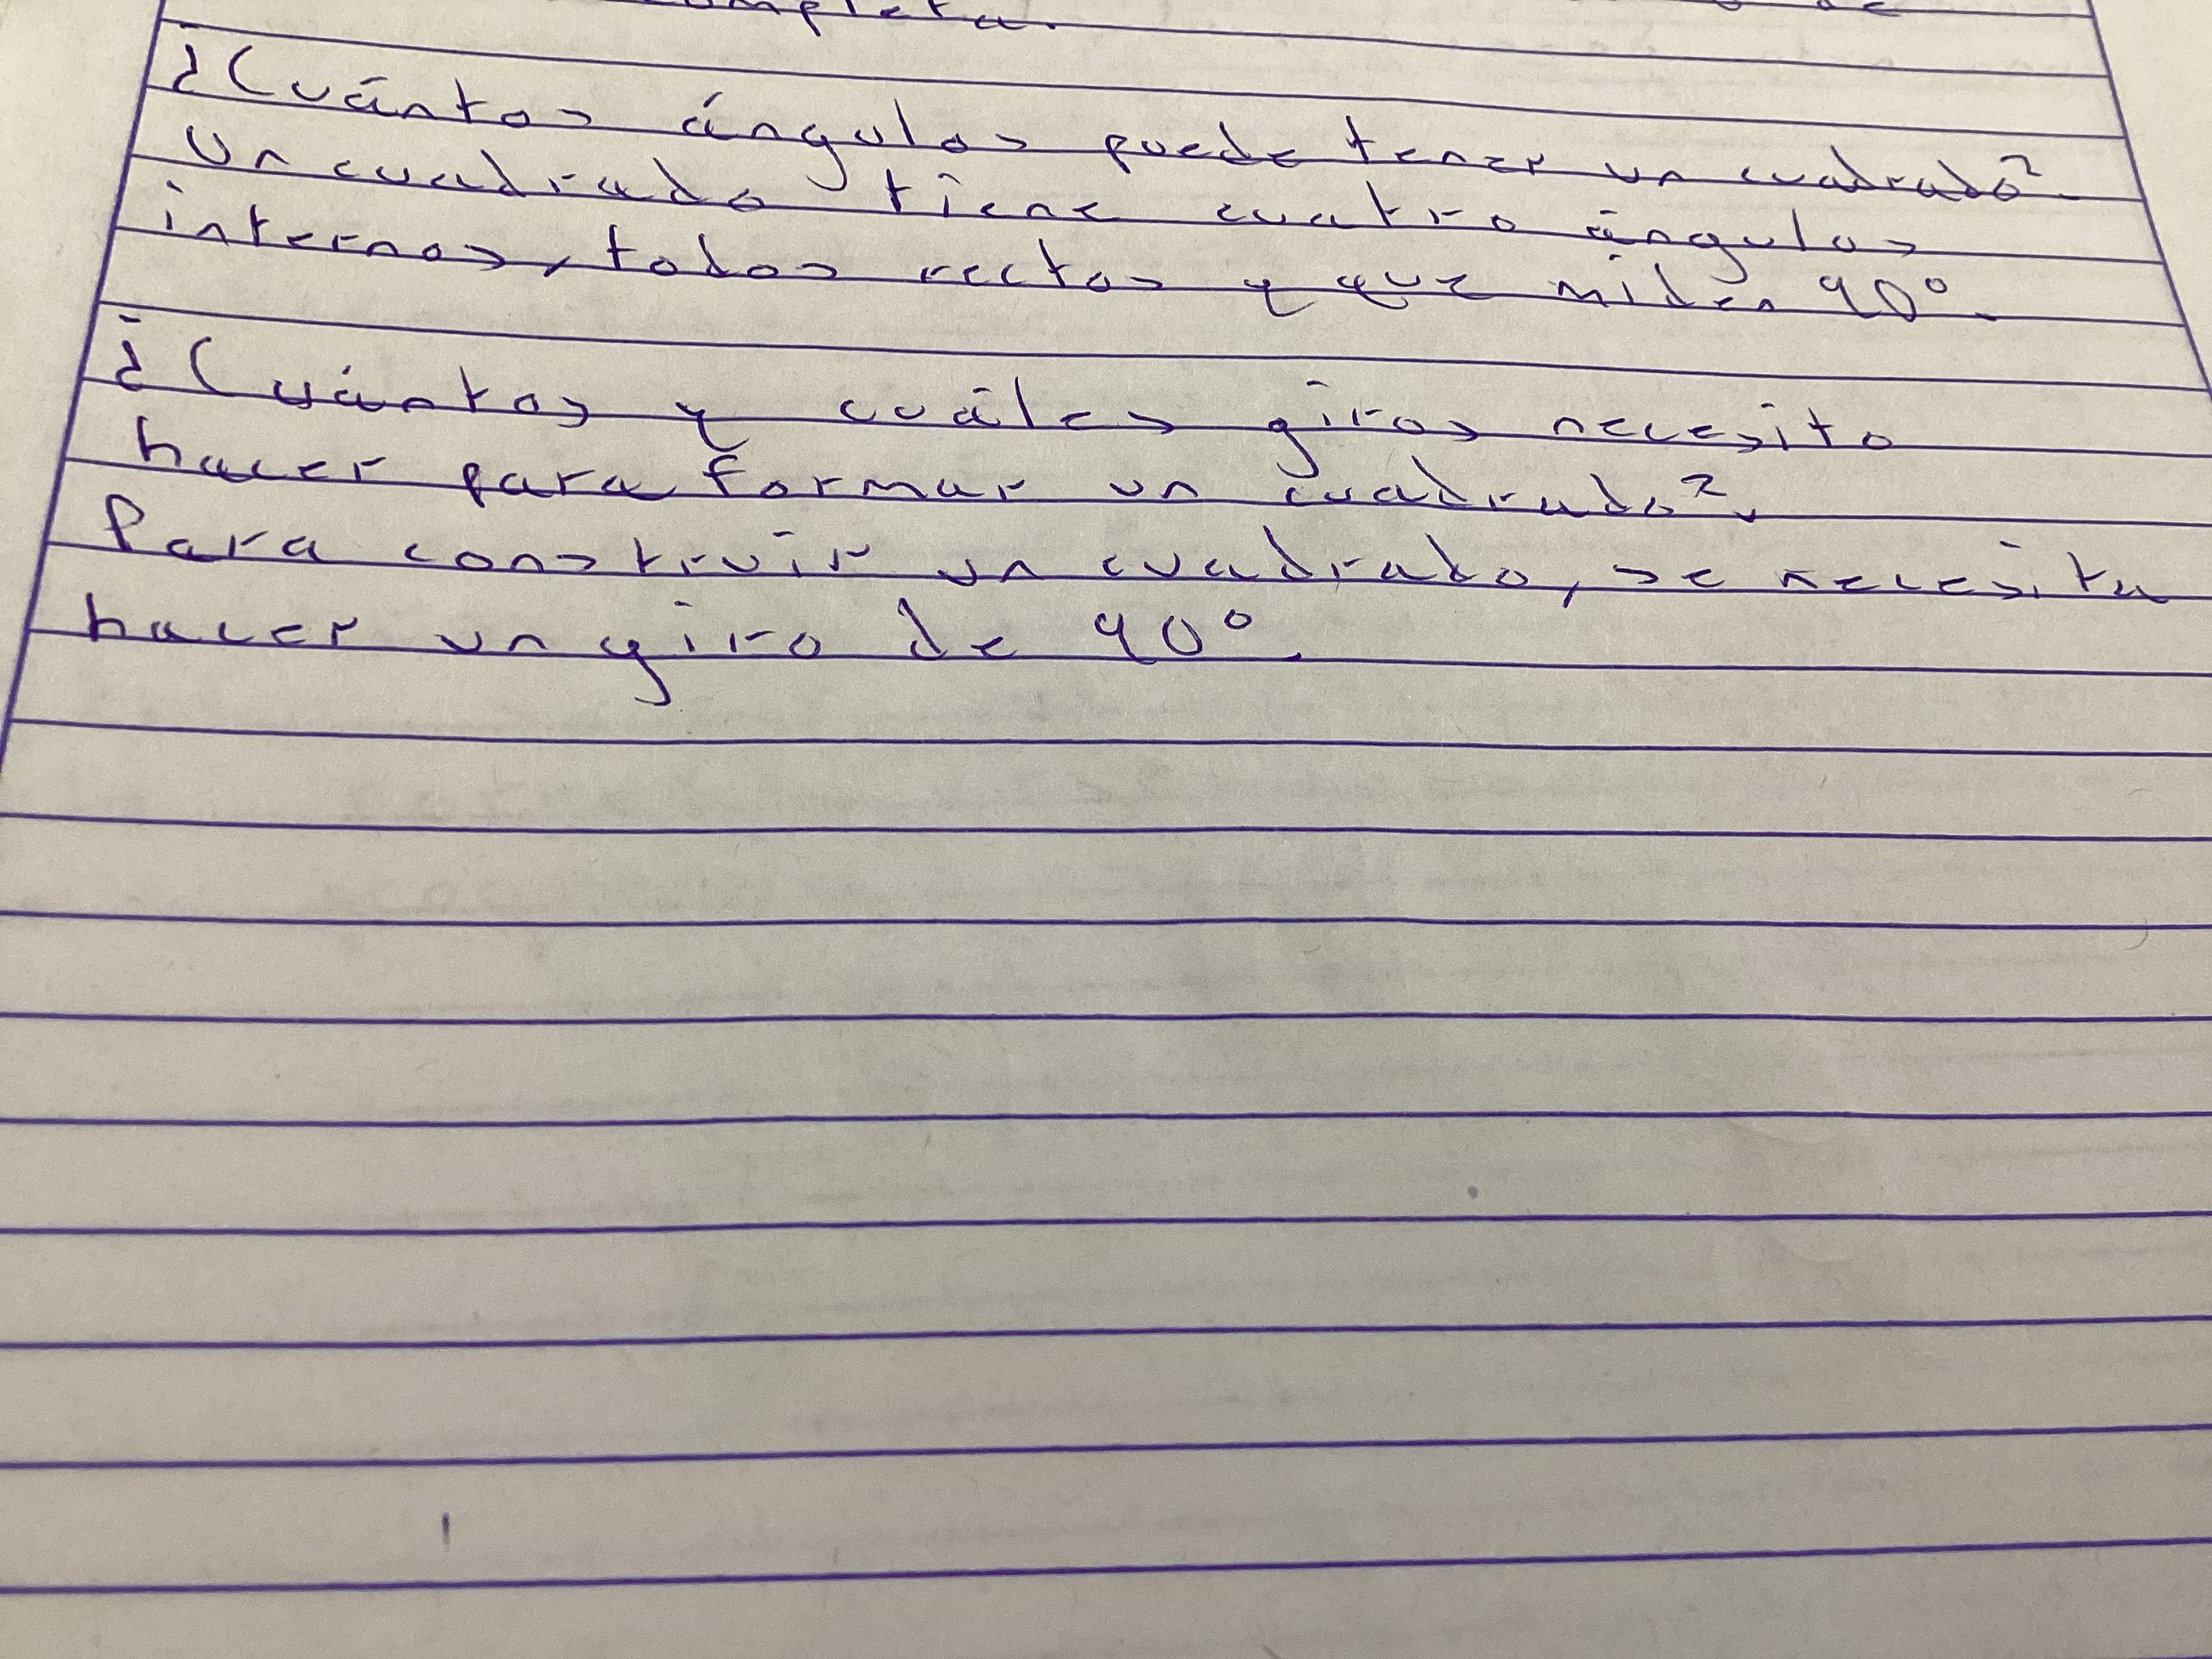 completa.
¿Cuántos ángulos puede tener un cuadrado?
Un cuadrado tiene cuatro ángulos
internos, todos rectos y que miden 90°.
¿Cuántos y cuáles giros necesito
hacer para formar un cuadrado?.
Para construir un cuadrado, se necesita
hacer un giro de 90°.